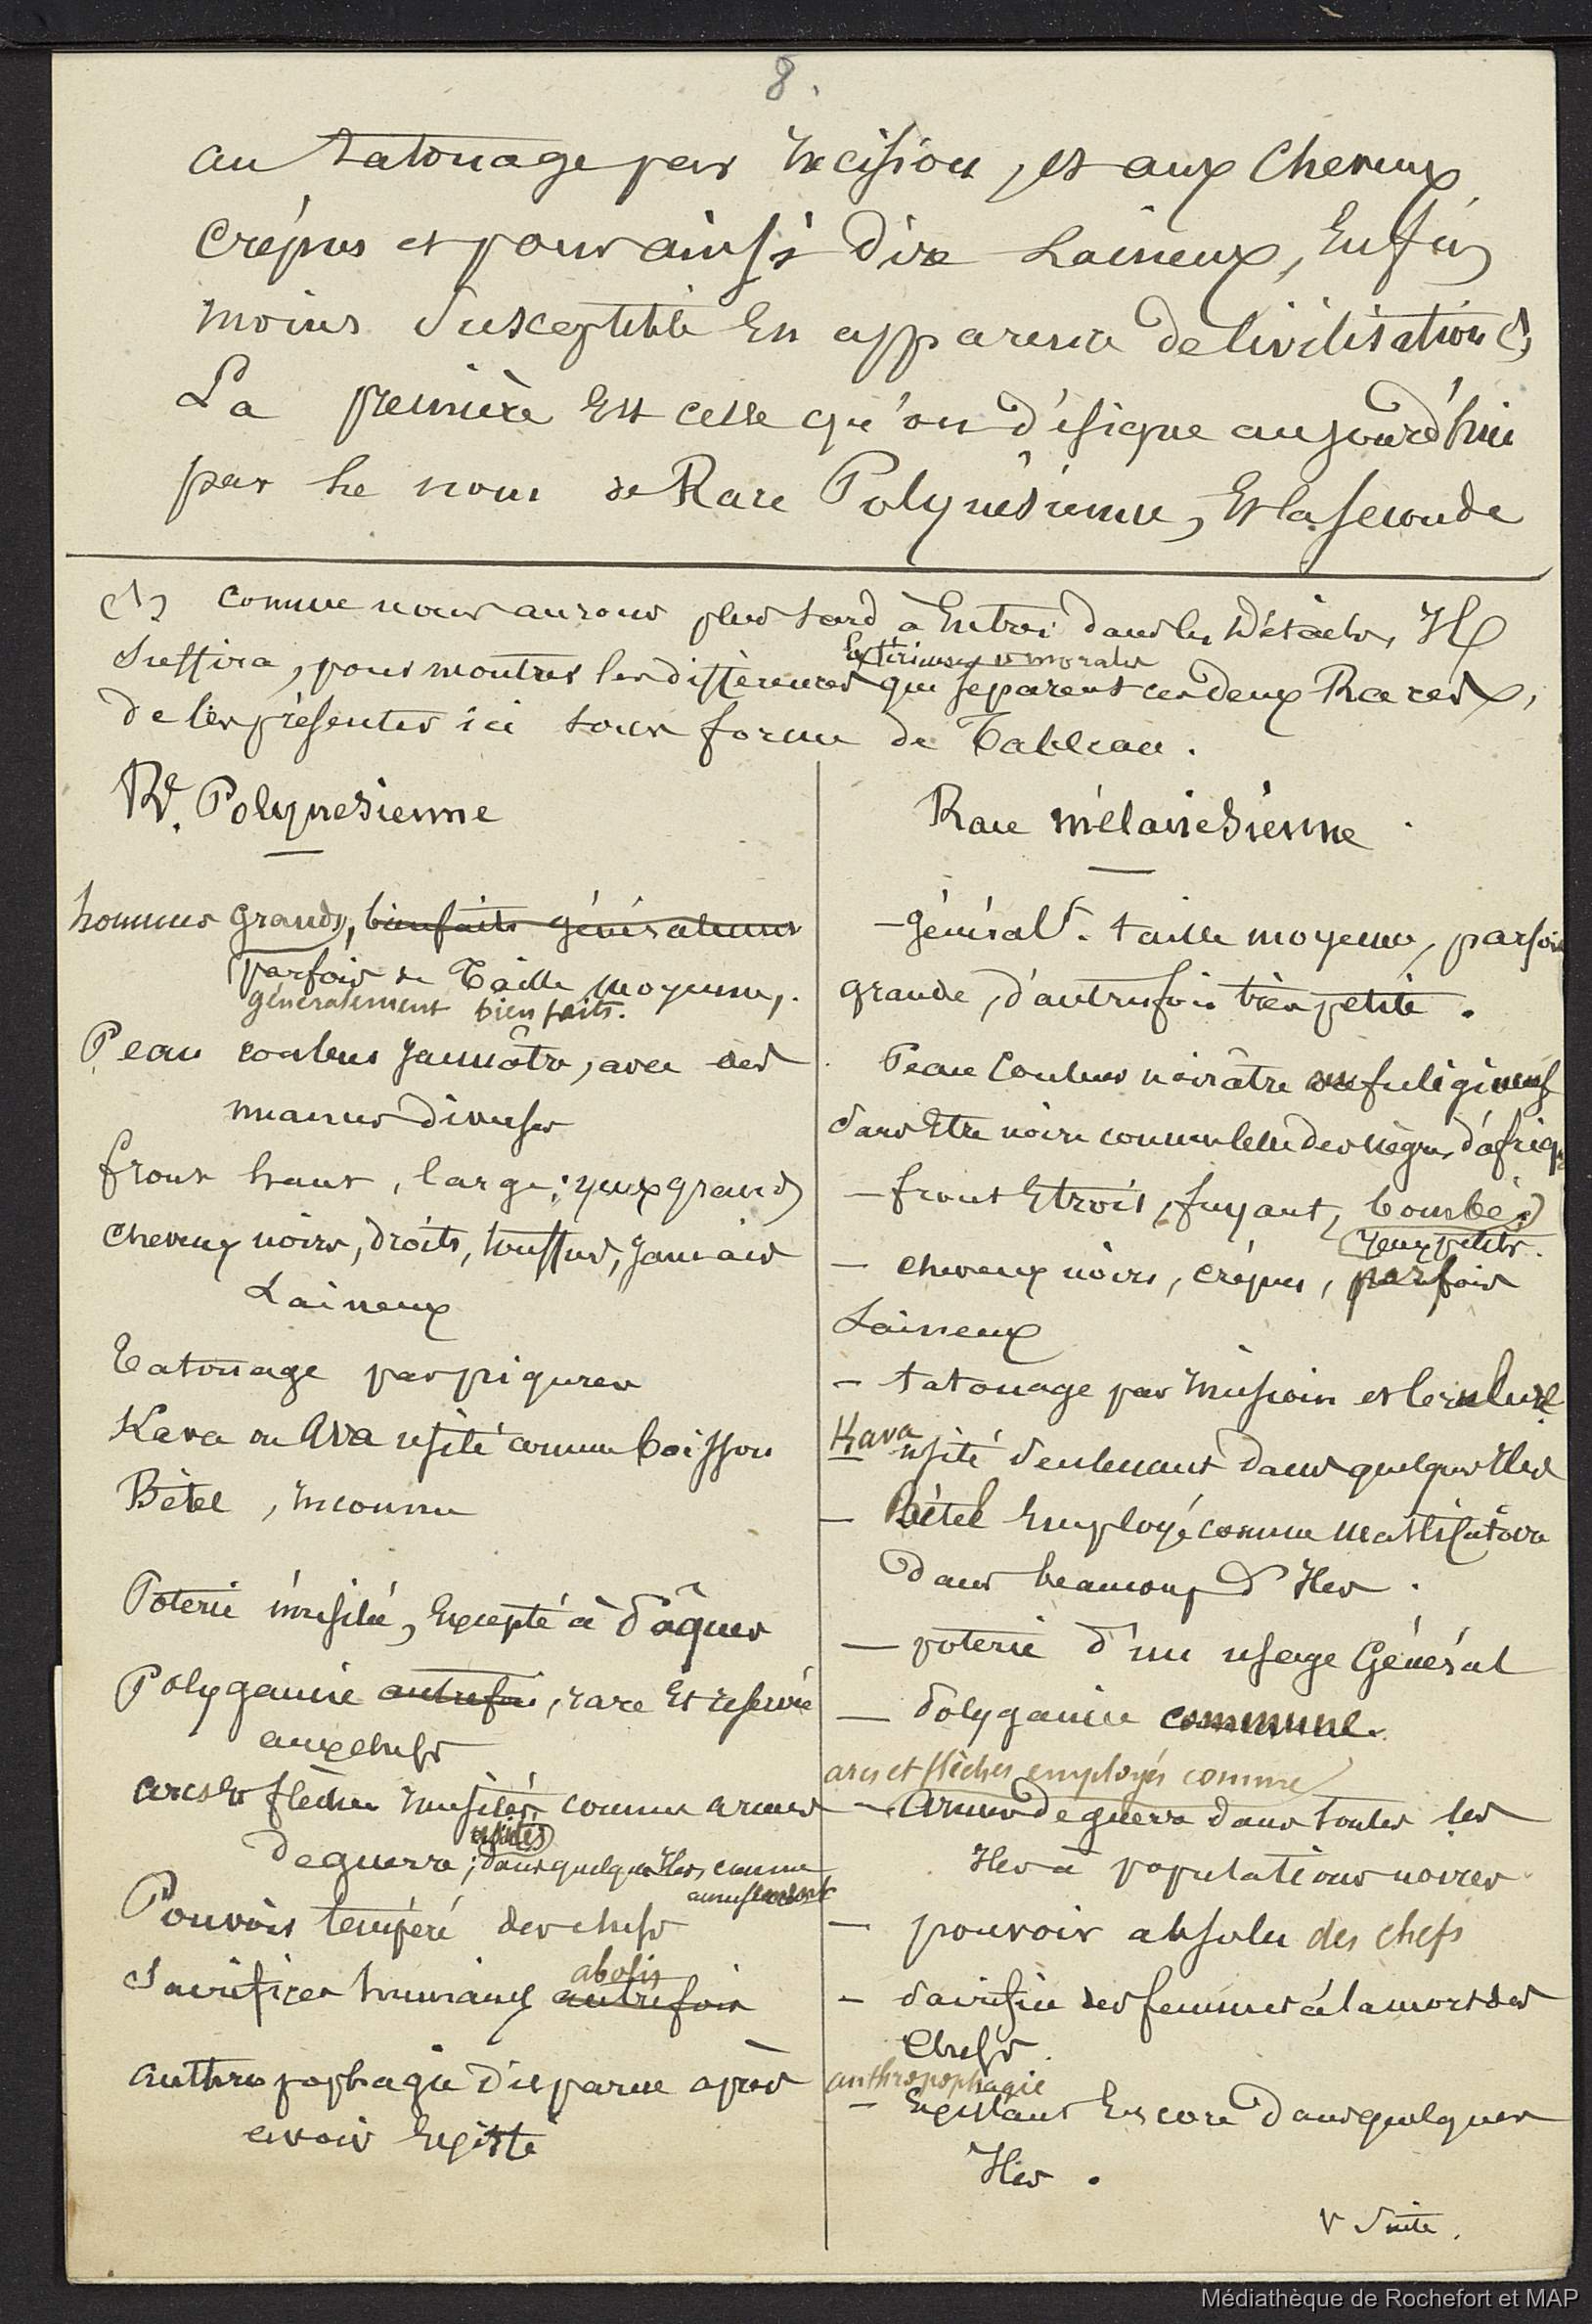 8.
au tatouage par incision, et aux cheveux
crépus et pour ainsi dire laineux, Enfin
moins susceptible En apparence de Civilisation (1)
La première Est celle qu'on désigne aujourd'hui
par le nom de Race Polynésienne, Et la seconde
(1) comme nous aurons plus tard à Entrer dans les Détails, Il
Extérieures et morales
suffira, pour montrer les différences qui séparent ces deux Races,
de les présenter ici sous forme de Tableau.
Re. Polynesienne
hommes grands, bienfaits généralement
parfois de Taille moyenne,
généralement bien faits.
Peau couleur jaunâtre, avec des
nuances diverses
front haut, large; yeux grands
cheveux noirs, droits, touffus, jamais
Laineux
Tatouage par piqures
Kava ou Ava usité comme boisson
Bétel, inconnu
Poterie inusitée, Excepté à
Polygamie autrefois, rare Et réservée
aux chefs
arcs Et flèches inusités comme armes
usités
de guerre; dans quelques Iles, comme
amusement
Pouvoir tempéré des chefs
abolis
Sacrifices humains autrefois
anthropophagie disparue après
avoir Existé
Race mélanésienne.
- généralt. taille moyenne, parfois
grande, d'autrefois très petite.
Peau Couleur noirâtre ou fuligineuse
sans Etre noire comme celle des nègres d'afrique
- front Etroit, fuyant, bombé;
yeux petits.
- cheveux noirs, crépus, parfois
Laineux
- tatouage par incision et
Kava
usité seulement dans quelques Iles
- Bétel Employé comme masticatoire
dans beaucoup d'Iles.
- poterie d'un usage Général
- Polygamie commune.
arcs et flèches employés comme
- Armes de guerre dans toutes les
Iles à populations noires
- pouvoir absolu des chefs
- Sacrifice des femmes à la mort des
Chefs.
anthropophagie
- Existant Encore dans quelques
Iles.
V Suite.
Médiathèque de Rochefort et MAP